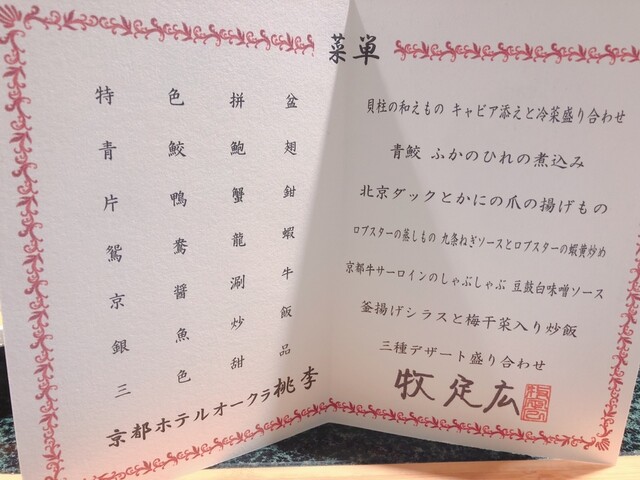 菜単
特色拼盆
青鮫鮑翅
片鴨蟹鉗
鴛鴦龍蝦
京醤涮牛
銀魚炒飯
三色甜品
京都ホテルオークラ 桃李
貝柱の和えもの キャビア添えと冷菜盛り合わせ
青鮫 ふかのひれの煮込み
北京ダックとかにの爪の揚げもの
ロブスターの蒸しもの 九条ねぎソースとロブスターの蝦黄炒め
京都牛サーロインのしゃぶしゃぶ 豆鼓白味噌ソース
釜揚げシラスと梅干菜入り炒飯
三種デザート盛り合わせ
牧定広